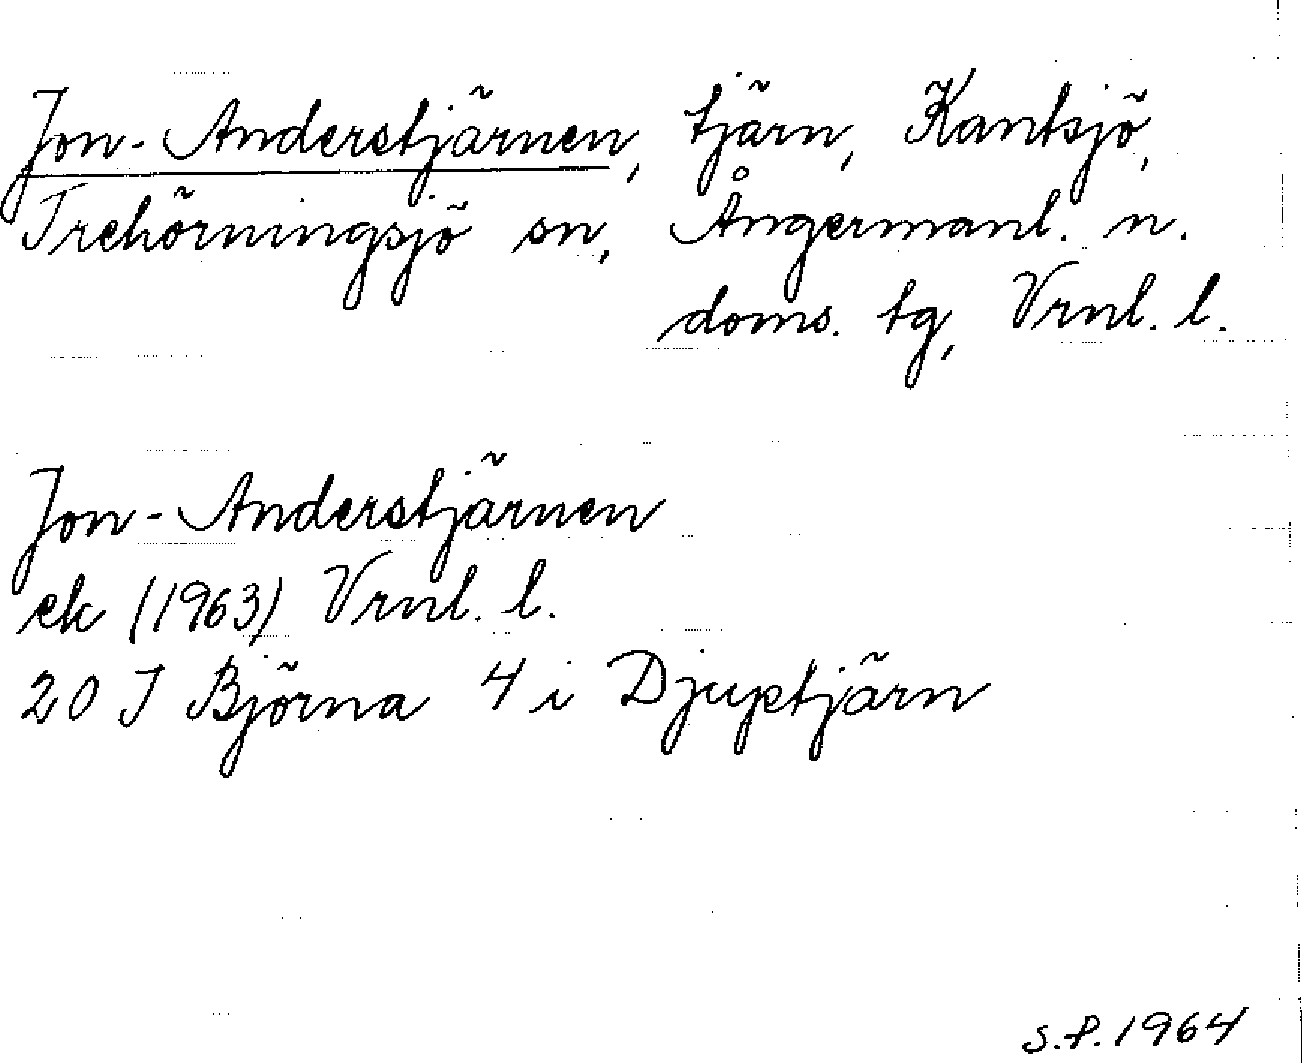 Jon-Anderstjärnen, tjärn, Kantsjö,
Trehörningsjö sn, Ångermanl. n.
doms. tg, Vrnl. l.
Jon-Anderstjärnen
ek (1963) Vrnl. l.
20 J Björna 4 i Djuptjärn
S.P. 1964